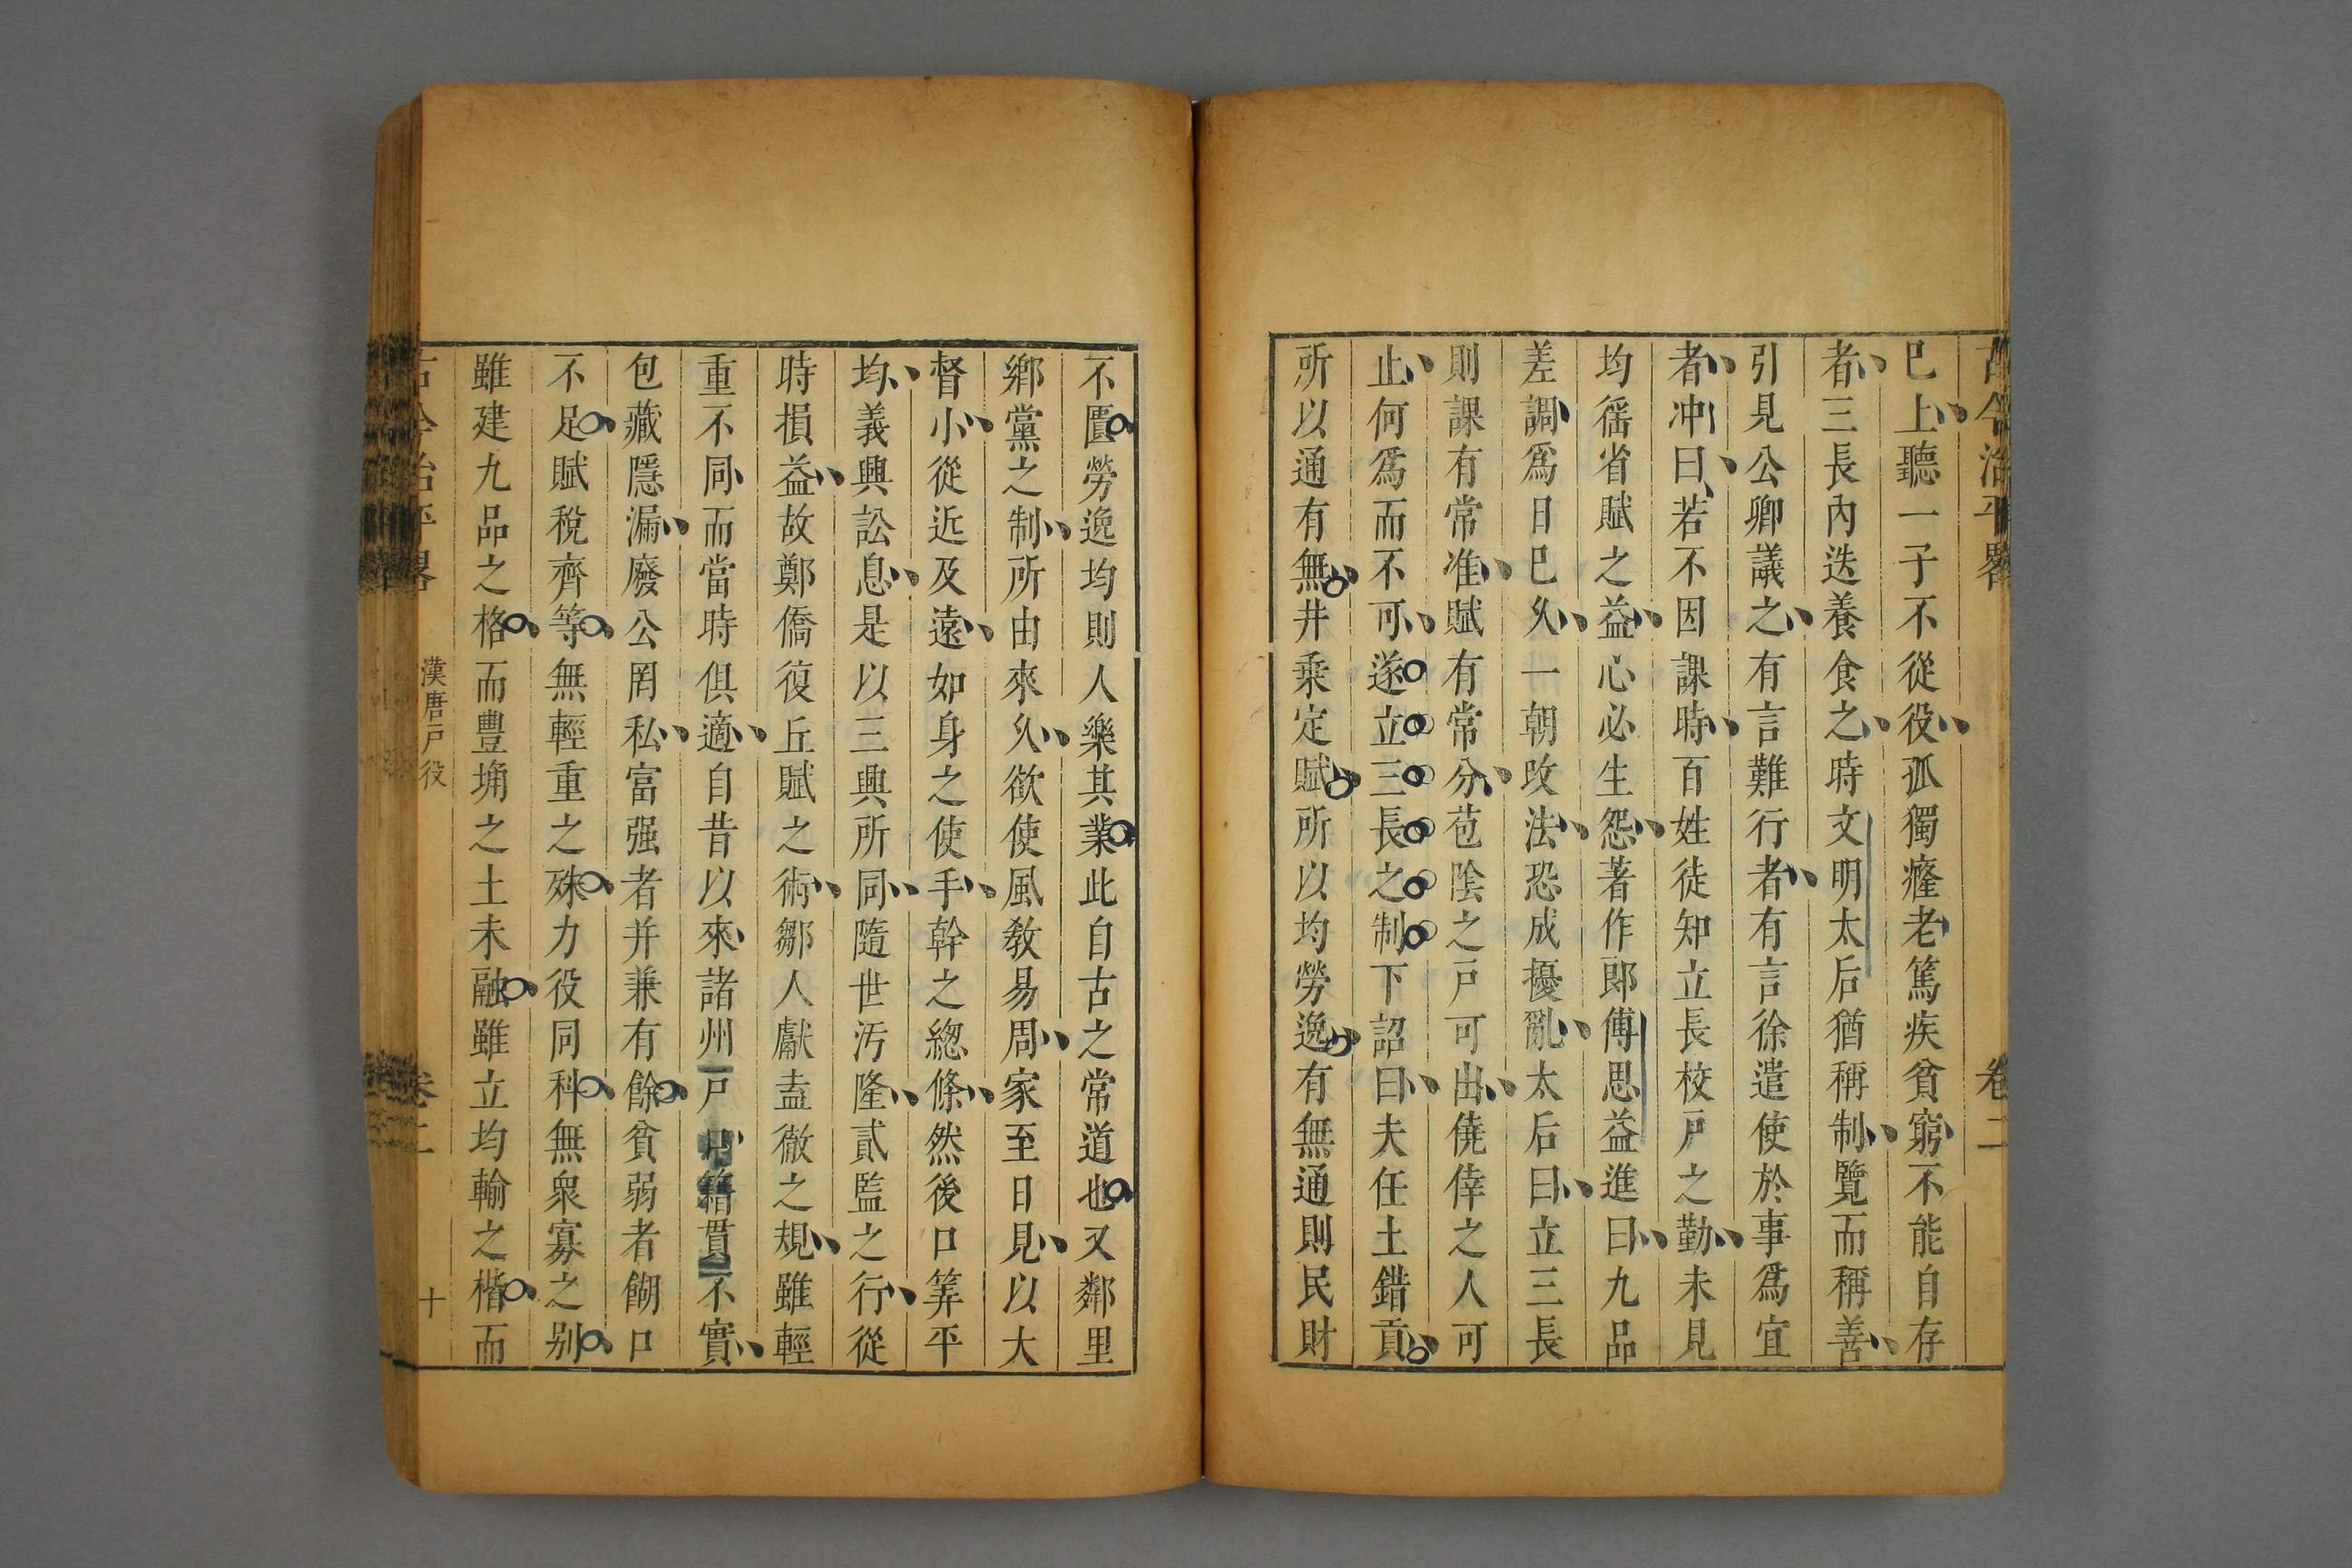 古今治平畧 卷二
巳上聽一子不從役孤獨癃老篤疾貧窮不能自存
者三長內迭養食之時文明太后猶稱制覽而稱善
引見公卿議之有言難行者有言徐遣使於事爲宜
者冲曰若不因課時百姓徒知立長校戸之勤未見
均徭省賦之益心必生怨著作郎傅思益進曰九品
差調爲日巳久一朝攺法恐成擾亂太后曰立三長
則課有常准賦有常分苞陰之戸可出僥倖之人可
止何爲而不可遂立三長之制下詔曰夫任土錯貢
所以通有無井乗定賦所以均勞逸有無通則民財
不匱勞逸均則人樂其業此自古之常道也又鄰里
鄉黨之制所由來久欲使風敎易周家至日見以大
督小從近及遠如身之使手幹之緫條然後口筭平
均義興訟息是以三興所同隨世汚隆貳監之行從
時損益故鄭僑復丘賦之術鄒人獻盍徹之規雖輕
重不同而當時俱適自昔以來諸州戸籍貫不實
包藏隱漏廢公罔私富强者并兼有餘貧弱者餬口
不足賦稅齊等無輕重之殊力役同科無衆寡之别
雖建九品之格而豊埆之土未融雖立均輸之楷而
古今治平畧 漢唐戸役 卷二 十